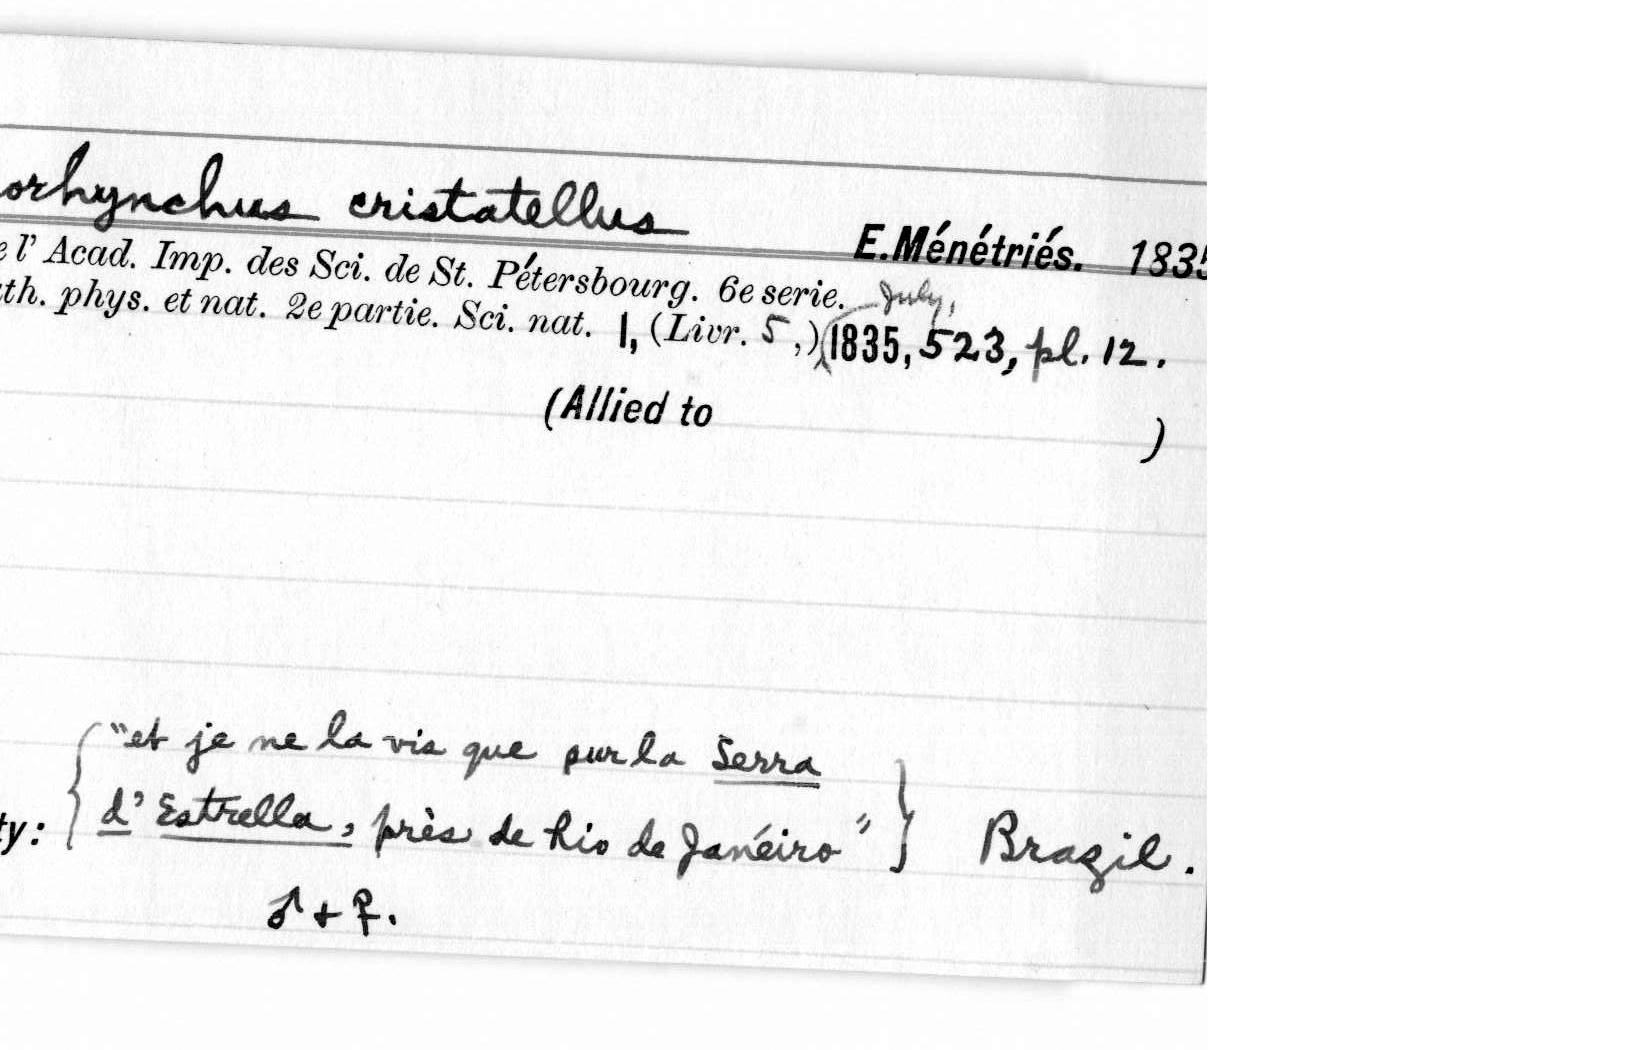 orhynchus cristatellus
E.Ménétriés. 1835
e l' Acad. Imp. des Sci. de St. Pétersbourg. 6e serie. July,
th. phys. et nat. 2e partie. Sci. nat. 1, (Livr. 5,) (1835, 523, pl. 12.
(Allied to )
"et je ne la vis que sur la Serra
ty: d' Estrella, près de Rio de Janéiro" Brazil.
♂ + ♀.